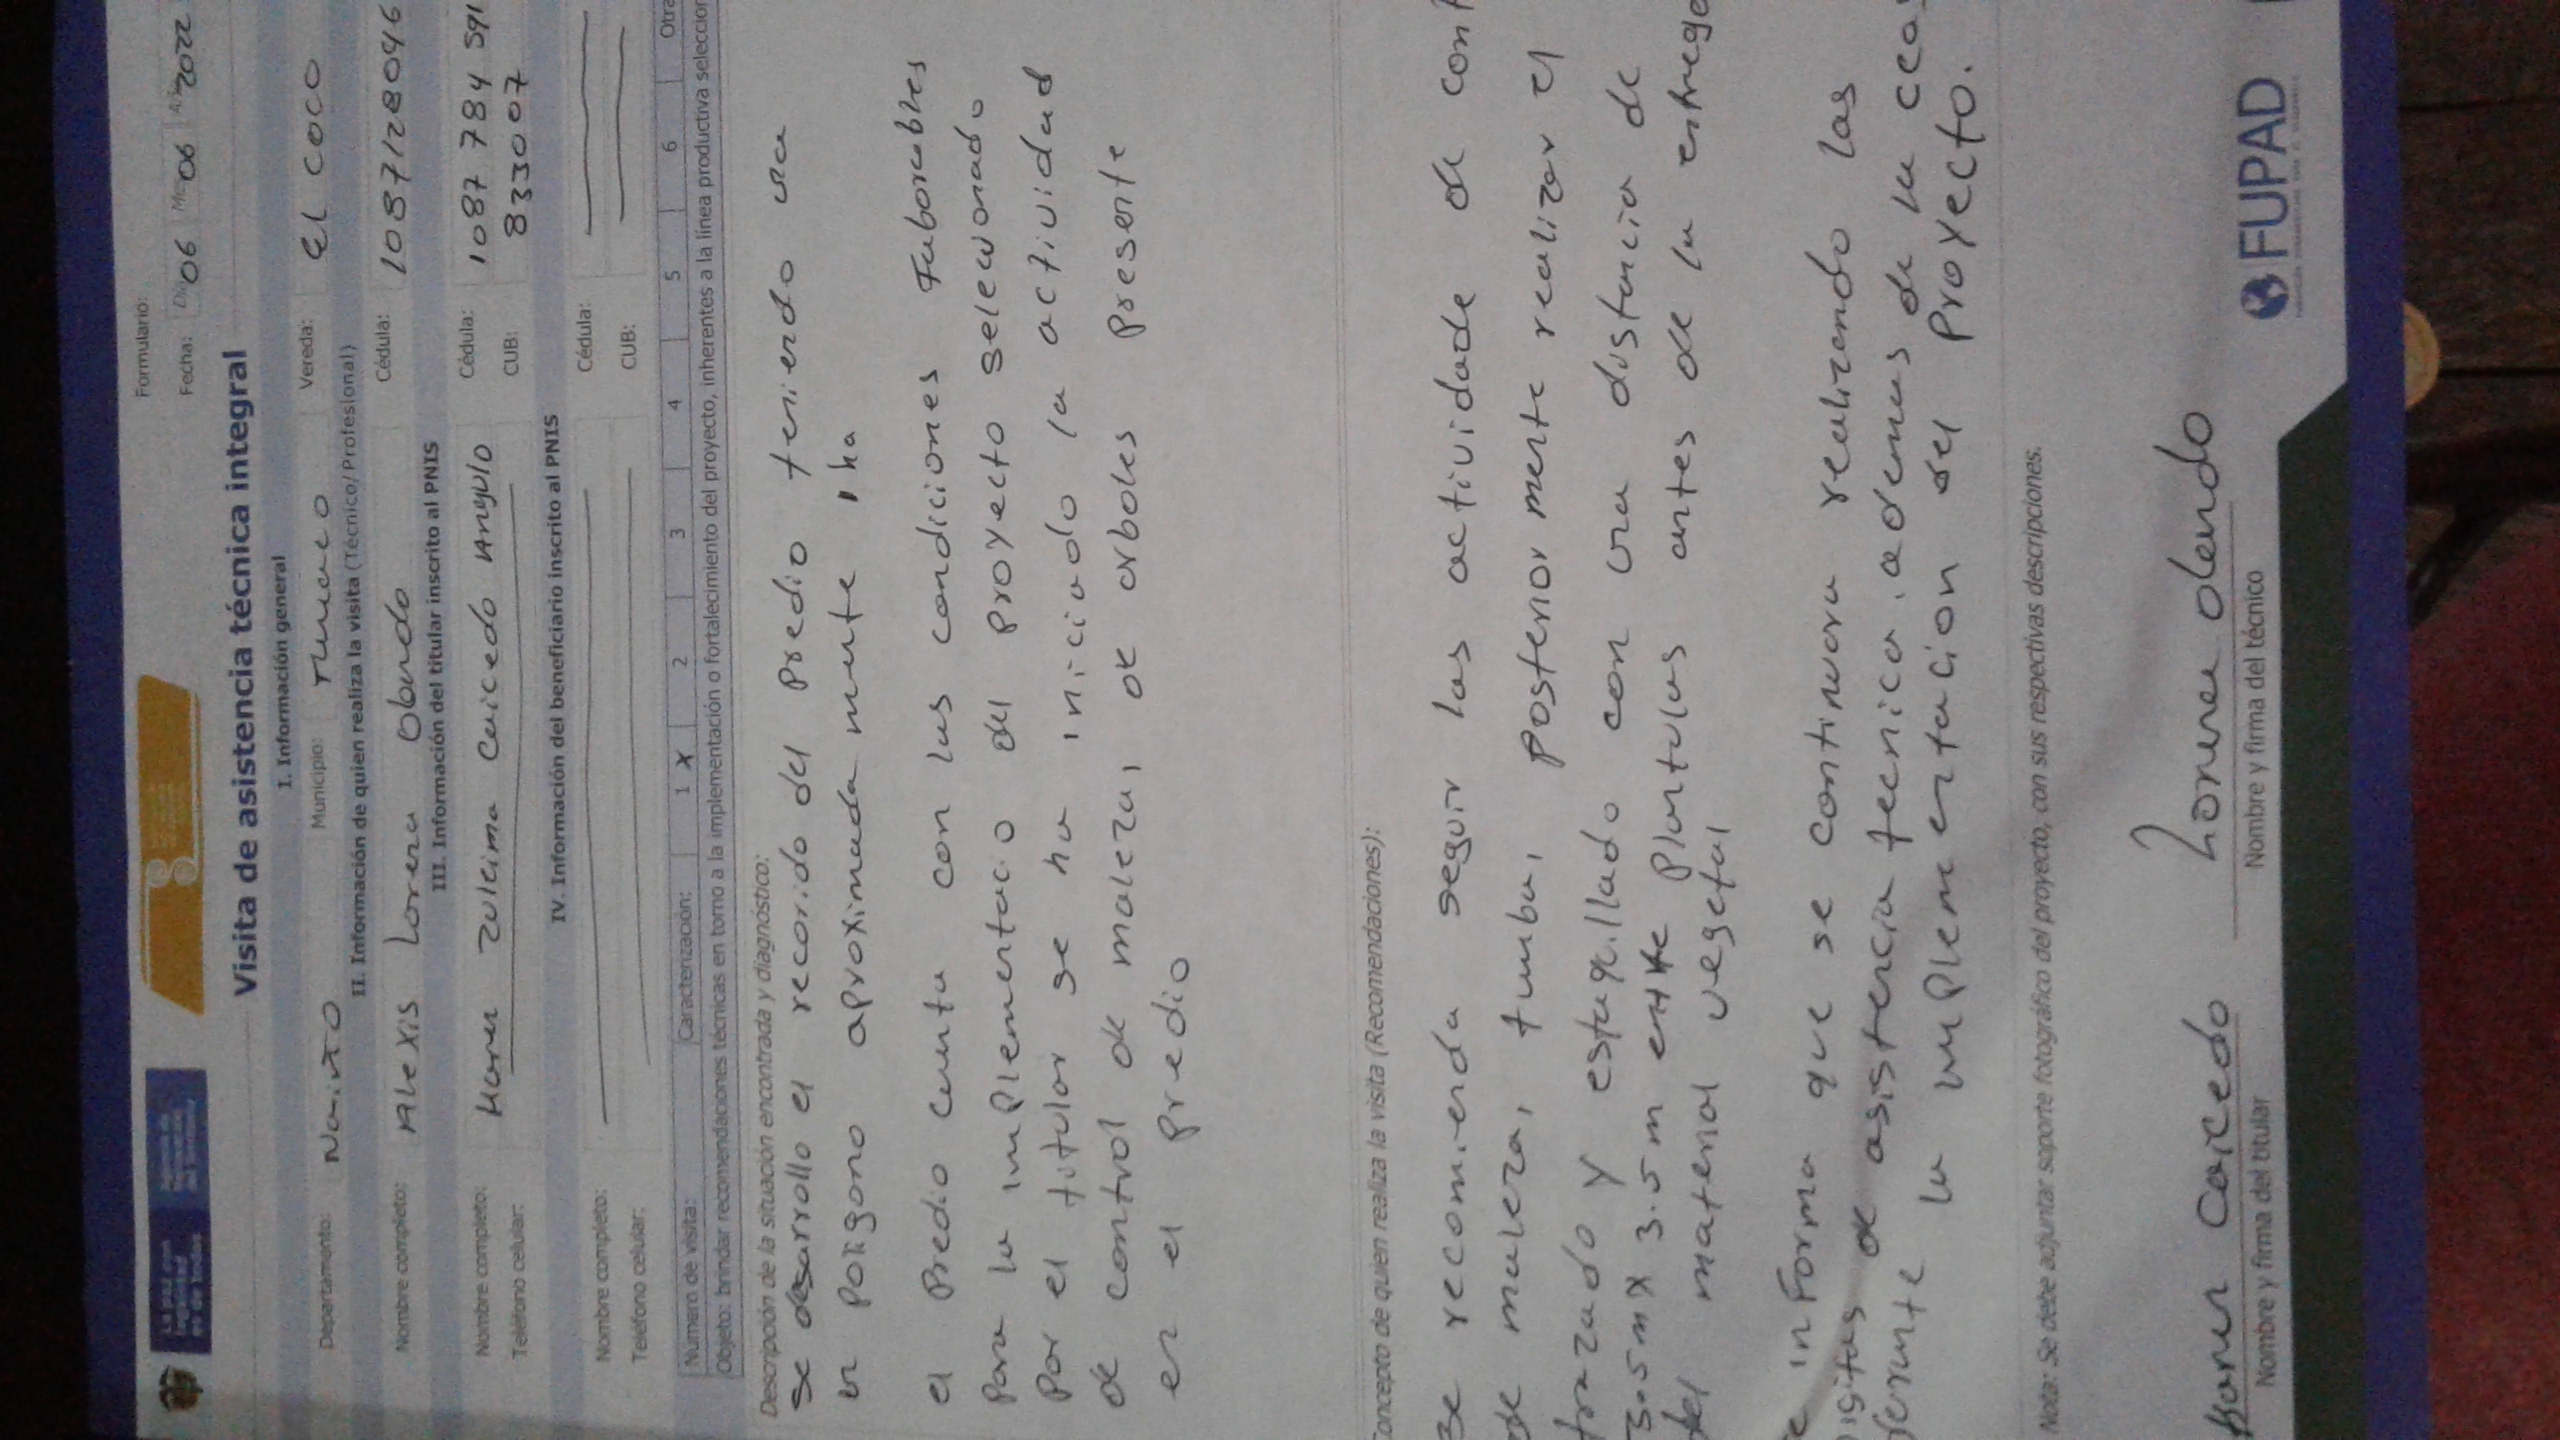 Formulario:
Fecha: Día 06 Mes 06 Año 2022
Visita de asistencia técnica integral
I. Información general
Departamento: Nariño Municipio: Tumaco Vereda: El Coco
II. Información de quien realiza la visita (Técnico/ Profesional)
Nombre completo: Alexis Lorena Obando Cédula: 1087128046
III. Información del titular inscrito al PNIS
Nombre completo: Karen Zuleima Caicedo Angulo Cédula: 1087 784 591
Teléfono celular: CUB: 833007
IV. Información del beneficiario inscrito al PNIS
Nombre completo: Cédula:
Teléfono celular: CUB:
Número de visita: Caracterización: 1 X 2 3 4 5 6 Otra
Objeto: brindar recomendaciones técnicas en torno a la implementación o fortalecimiento del proyecto, inherentes a la línea productiva seleccion
Descripción de la situación encontrada y diagnóstico:
se desarrollo el recorido del predio teniendo una
un poligono aproximada mente 1 ha
el predio cuenta con las condiciones Faborables
para la implementacio del proyecto selecionado
por el titular se ha iniciado la actividad
de control de maleza, de arboles presente
en el predio
Concepto de quien realiza la visita (Recomendaciones):
se recomienda seguir las actividade de cont
de maleza, tumba, posterior mente realizar el
trazado y estaquillado con una distancia de
3.5 m x 3.5 m entre plantulas antes de la entrega
del material vegetal
e informa que se continuara realizando las
isitas de asistencia tecnica, ademas de la
la implementacion del proyecto.
Nota: Se debe adjuntar soporte fotográfico del proyecto, con sus respectivas descripciones.
Karen Caicedo Lorena Obando
Nombre y firma del titular Nombre y firma del técnico
FUPAD